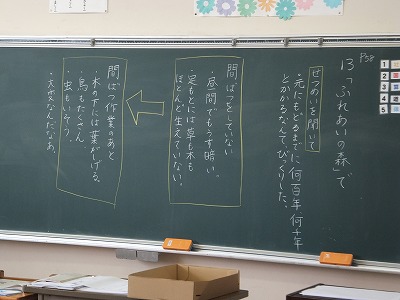 P58
13「ふれあいの森」で
せつめいを聞いて
・元にもどるまでに何百年何千年
とかかるなんて、びっくりした。
間ばつをしていない
・昼間でもうす暗い。
・足もとには草も木も
ほとんど生えていない。
間ばつ作業のあと
・木の下には葉がしげる。
・鳥もたくさん
・虫もいそう
・大変なんだなあ。
1
2
3
4
5